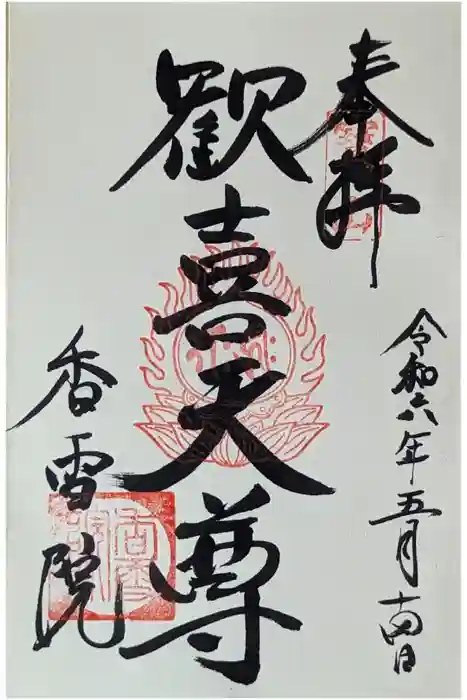 奉拝
歡喜天尊
香雪院
令和六年五月十四日